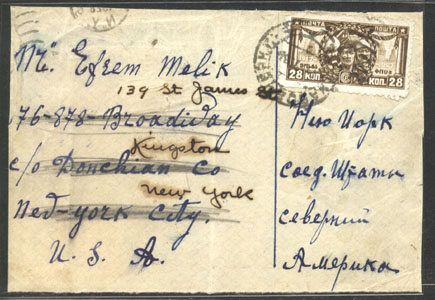 Mr. Efrem Melik
139 St James St
76-878-Broadiday
Kingston
c/o Donchian Co
New York
Ned-york City.
U. S. A.
ПОЧТА ПОШТА
28 КОП. КОП. 28
Ню Йорк
Соед. Штати
Северний
Америка